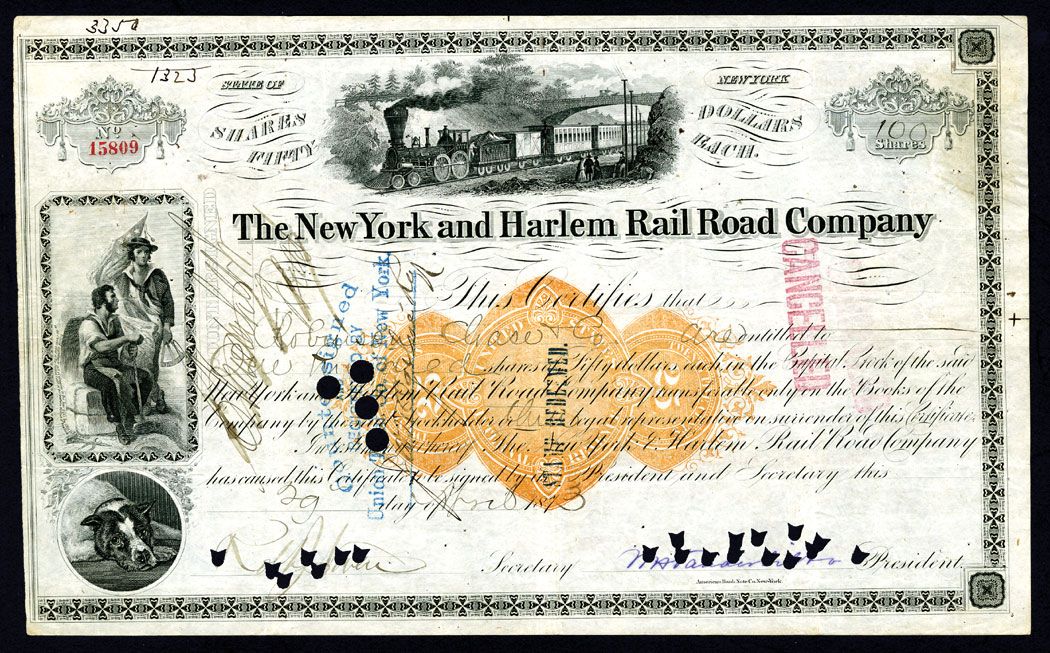 3350
1323
STATE OF NEW YORK
SHARES DOLLARS
FIFTY EACH.
No 15809
100 Shares
The New York and Harlem Rail Road Company
CANCELLED
This Certifies that
Robinson Chase & Co are entitled to
One Hundred shares of Fifty dollars each in the Capital Stock of the said
New York and Harlem Rail Road Company transferable only on the Books of the
Company by the said Stockholder or
representative on surrender of this Certificate.
In testimony whereof the New York & Harlem Rail Road Company
has caused this Certificate to be signed by its President and Secretary this
29 day of April 1873
Countersigned
BY
Union Trust Co. of New York
STAMP REDEEMED.
Secretary
President.
American Bank Note Co. New-York.